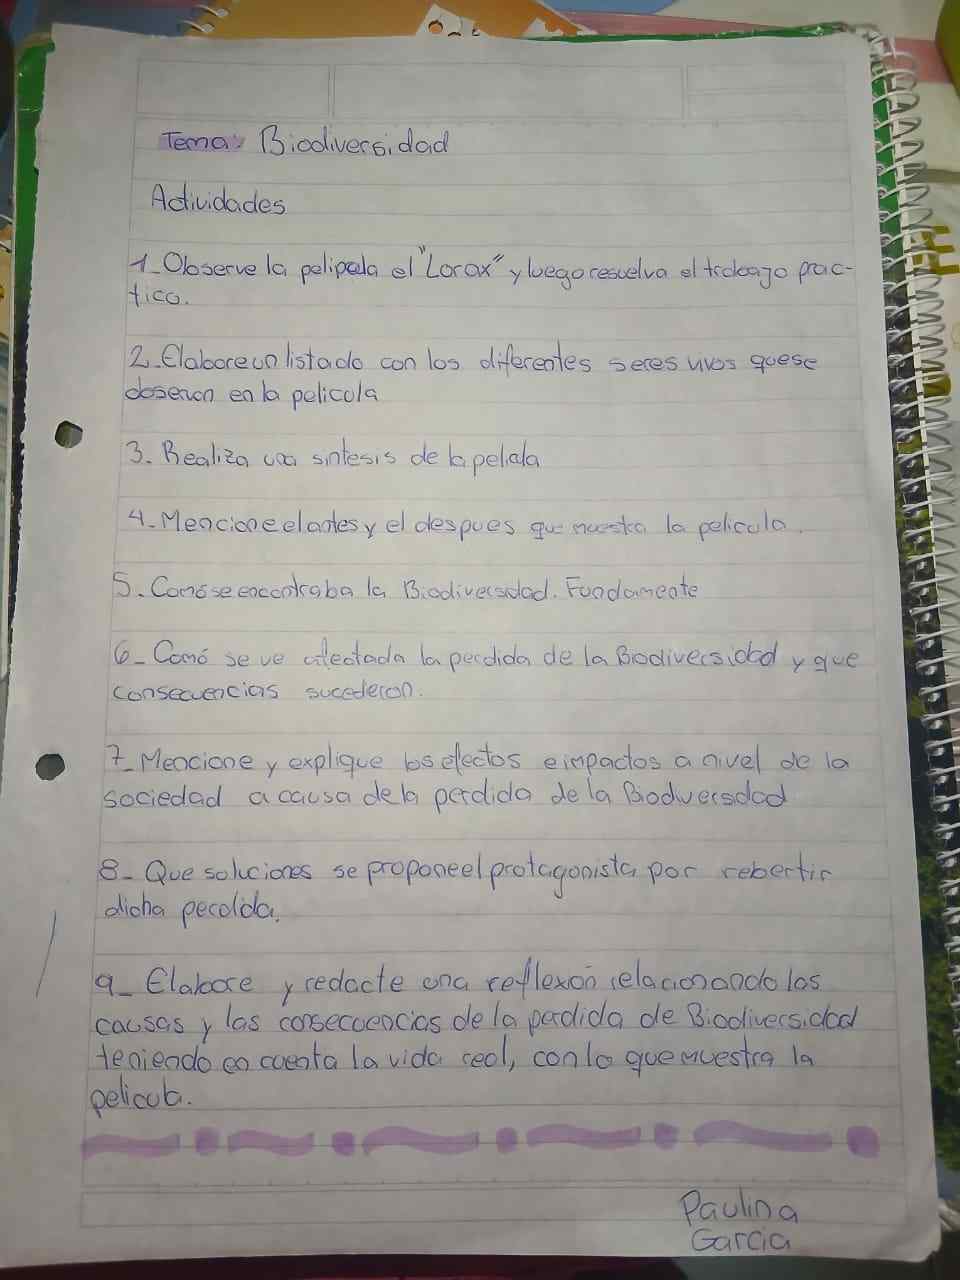 Tema: Biodiversidad
Actividades
1_Observe la pelipcula el "Lorax" y luego resuelva el trabajo prac-
tico.
2_Elabore un listado con los diferentes seres vivos que se
observan en la pelicula
3. Realiza una sintesis de la pelicula
4_Mencione el antes y el despues que muestra la pelicula.
5. Comó se encontraba la Biodiversidad. Fundamente
6_ Comó se ve afectada la perdida de la Biodiversidad y que
consecuencias sucederon.
7_Mencione y explique los efectos e impactos a nivel de la
sociedad a causa de la perdida de la Biodiversidad
8_ Que soluciones se propone el protagonista por rebertir
dicha perdida.
9_ Elabore y redacte una reflexión relacionando las
causas y las consecuencias de la perdida de Biodiversidad
teniendo en cuenta la vida real, con lo que muestra la
pelicula.
Paulina
Garcia